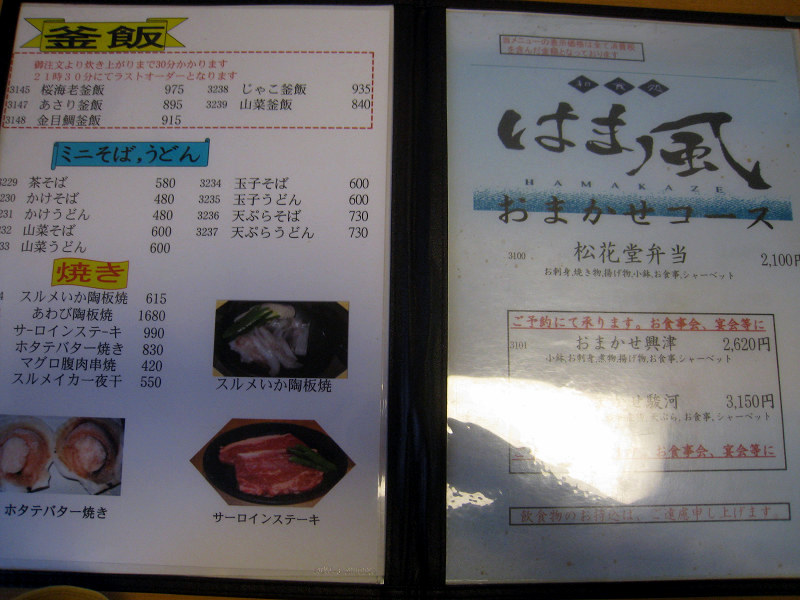 釜飯
御注文より炊き上がりまで30分かかります
21時30分にてラストオーダーとなります
3145 桜海老釜飯 975 3238 じゃこ釜飯 935
3147 あさり釜飯 895 3239 山菜釜飯 840
3148 金目鯛釜飯 915
ミニそば,うどん
3229 茶そば 580 3234 玉子そば 600
230 かけそば 480 3235 玉子うどん 600
231 かけうどん 480 3236 天ぷらそば 730
232 山菜そば 600 3237 天ぷらうどん 730
33 山菜うどん 600
焼き
スルメいか陶板焼 615
あわび陶板焼 1680
サーロインステーキ 990
ホタテバター焼き 830
マグロ腹肉串焼 420
スルメイカ一夜干 550
スルメいか陶板焼
ホタテバター焼き
サーロインステーキ
当メニューの表示価格は全て消費税
を含んだ金額となっております
はま風
HAMAKAZE
おまかせコース
3100 松花堂弁当 2,100円
お刺身,焼き物,揚げ物,小鉢,お食事,シャーベット
ご予約にて承ります。お食事会、宴会等に
3101 おまかせ興津 2,620円
小鉢,お刺身,煮物,揚げ物,お食事,シャーベット
せ駿河 3,150円
天ぷら,お食事,シャーベット
お食事会、宴会等に
飲食物のお持込は、ご遠慮申し上げます。